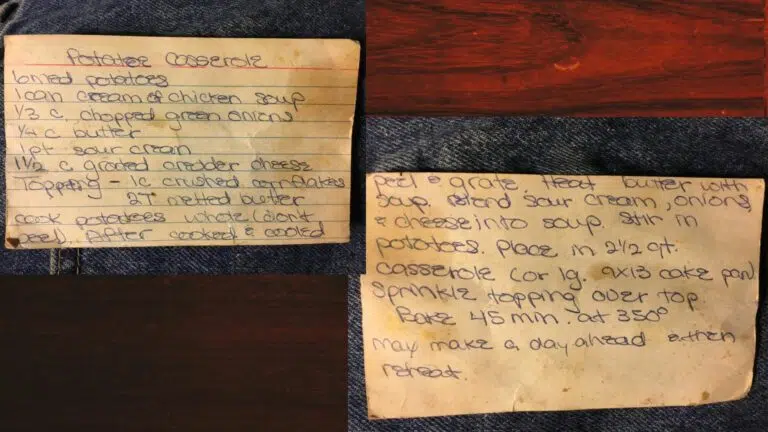 Potatoe Casserole
6 med potatoes
1 can cream of chicken soup
1/3 c. chopped green onions
1/4 c butter
1 pt sour cream
1 1/2 c grated chedder cheese
Topping - 1c crushed cornflakes
2T melted butter
Cook potatoes whole (don't
peel). After cooked & cooled
peel & grate. Heat butter with
soup. Blend sour cream, onions
& cheese into soup. Stir in
potatoes. Place in 2 1/2 qt.
casserole (or lg. 9x13 cake pan)
Sprinkle topping over top
Bake 45 min. at 350°
may make a day ahead & then
reheat.